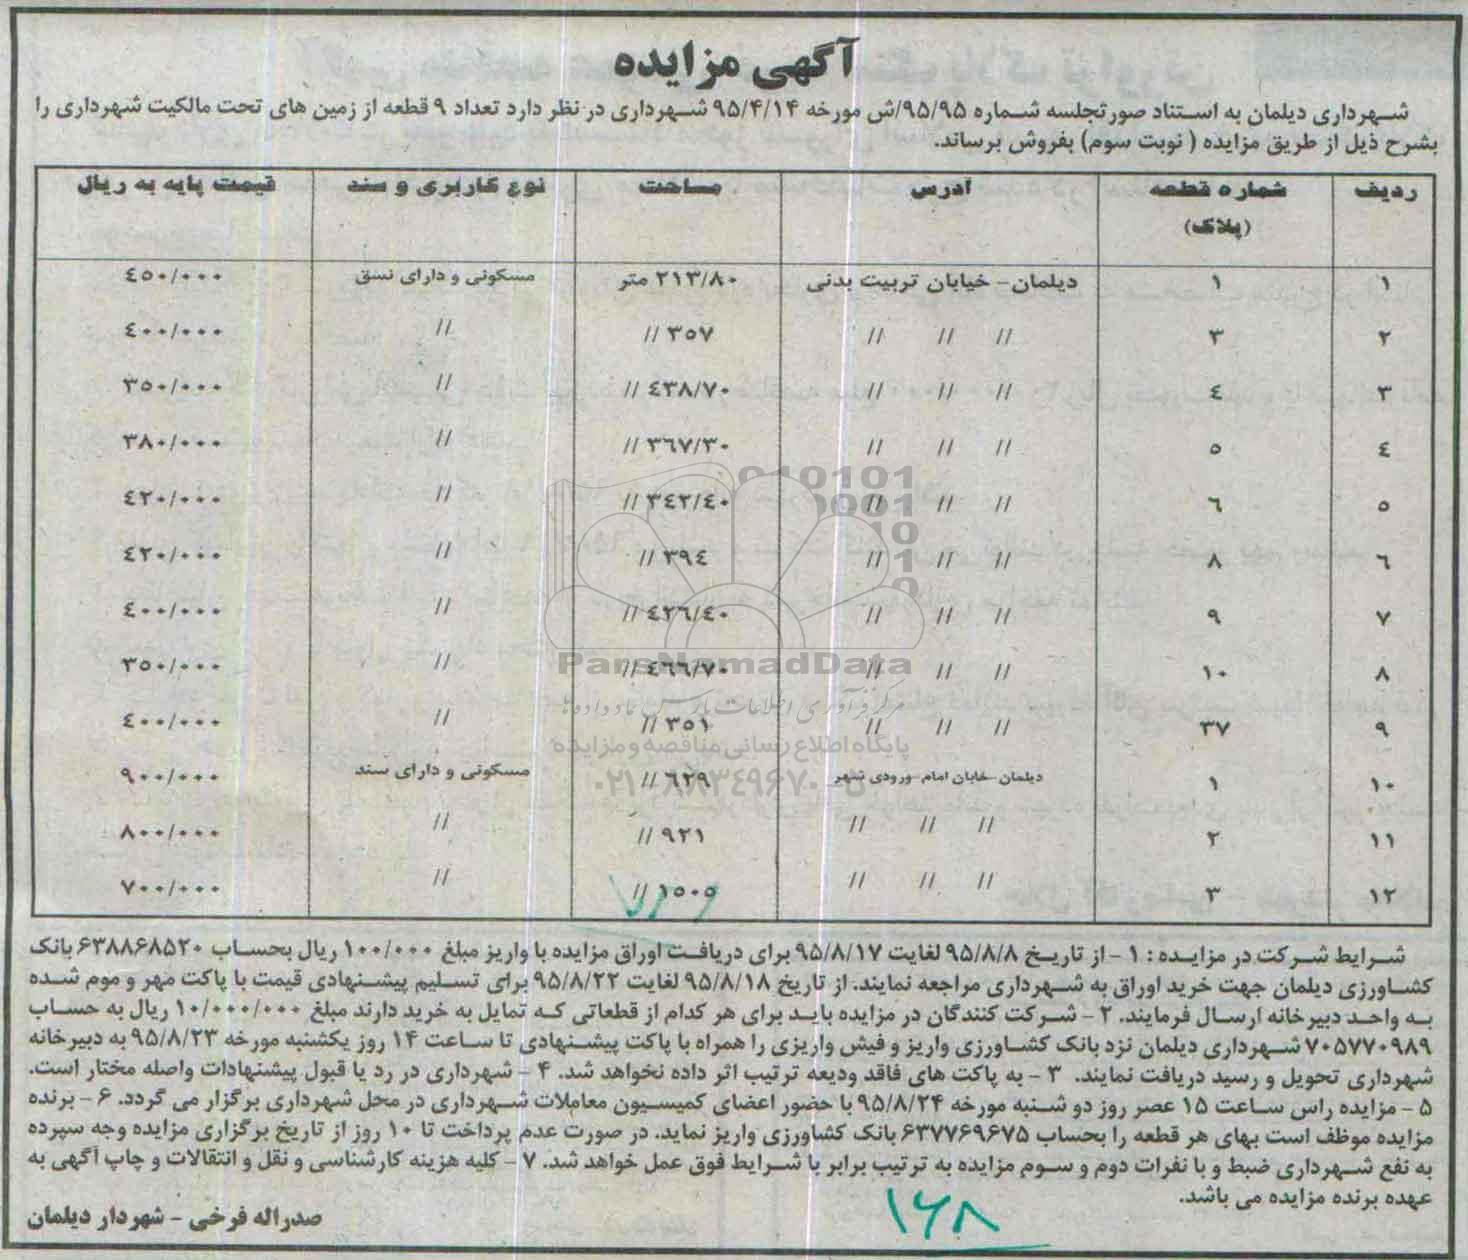 آگهی مزایده
شهرداری دیلمان به استناد صورتجلسه شماره ۹۵/۹۵/ش مورخه ۹۵/۴/۱۴ شهرداری در نظر دارد تعداد ۹ قطعه از زمین های تحت مالکیت شهرداری را
بشرح ذیل از طریق مزایده ( نوبت سوم) بفروش برساند.
ردیف شماره قطعه (پلاک) آدرس مساحت نوع کاربری و سند قیمت پایه به ریال
۱ ۱ دیلمان- خیابان تربیت بدنی ۲۱۳/۸۰ متر مسکونی و دارای نسق ۴۵۰/۰۰۰
۲ ۳ // // // ۳۵۷ // // ۴۰۰/۰۰۰
۳ ۴ // // // ۴۳۸/۷۰ // // ۳۵۰/۰۰۰
۴ ۵ // // // ۳۶۷/۳۰ // // ۳۸۰/۰۰۰
۵ ۶ // // // ۳۴۲/۴۰ // // ۴۲۰/۰۰۰
۶ ۸ // // // ۳۹۴ // // ۴۲۰/۰۰۰
۷ ۹ // // // ۴۲۶/۴۰ // // ۴۰۰/۰۰۰
۸ ۱۰ // // // ۴۶۶/۷۰ // // ۳۵۰/۰۰۰
۹ ۳۷ // // // ۳۵۱ // // ۴۰۰/۰۰۰
۱۰ ۱ دیلمان-خابان امام-ورودی شهر ۶۲۹ // مسکونی و دارای سند ۹۰۰/۰۰۰
۱۱ ۲ // // // ۹۲۱ // // ۸۰۰/۰۰۰
۱۲ ۳ // // // ۱۵۰۵ // // ۷۰۰/۰۰۰
شرایط شرکت در مزایده : ۱ - از تاریخ ۹۵/۸/۸ لغایت ۹۵/۸/۱۷ برای دریافت اوراق مزایده با واریز مبلغ ۱۰۰/۰۰۰ ریال بحساب ۶۳۸۸۶۸۵۲۰ بانک
کشاورزی دیلمان جهت خرید اوراق به شهرداری مراجعه نمایند. از تاریخ ۹۵/۸/۱۸ لغایت ۹۵/۸/۲۲ برای تسلیم پیشنهادی قیمت با پاکت مهر و موم شده
به واحد دبیرخانه ارسال فرمایند. ۲ - شرکت کنندگان در مزایده باید برای هر کدام از قطعاتی که تمایل به خرید دارند مبلغ ۱۰/۰۰۰/۰۰۰ ریال به حساب
۷۰۵۷۷۰۹۸۹ شهرداری دیلمان نزد بانک کشاورزی واریز و فیش واریزی را همراه با پاکت پیشنهادی تا ساعت ۱۴ روز یکشنبه مورخه ۹۵/۸/۲۳ به دبیرخانه
شهرداری تحویل و رسید دریافت نمایند. ۳ - به پاکت های فاقد ودیعه ترتیب اثر داده نخواهد شد. ۴ - شهرداری در رد یا قبول پیشنهادات واصله مختار است.
۵ - مزایده راس ساعت ۱۵ عصر روز دو شنبه مورخه ۹۵/۸/۲۴ با حضور اعضای کمیسیون معاملات شهرداری در محل شهرداری برگزار می گردد. ۶ - برنده
مزایده موظف است بهای هر قطعه را بحساب ۶۳۷۷۶۹۶۷۵ بانک کشاورزی واریز نماید. در صورت عدم پرداخت تا ۱۰ روز از تاریخ برگزاری مزایده وجه سپرده
به نفع شهرداری ضبط و با نفرات دوم و سوم مزایده به ترتیب برابر با شرایط فوق عمل خواهد شد. ۷ - کلیه هزینه کارشناسی و نقل و انتقالات و چاپ آگهی به
عهده برنده مزایده می باشد.
صدراله فرخی - شهردار دیلمان
۱۶۸
ParsNamadData
مرکز فرآوری اطلاعات پارس نماد داده ها
پایگاه اطلاع رسانی مناقصه و مزایده
۰۲۱-۸۸۳۴۹۶۷۰-۵